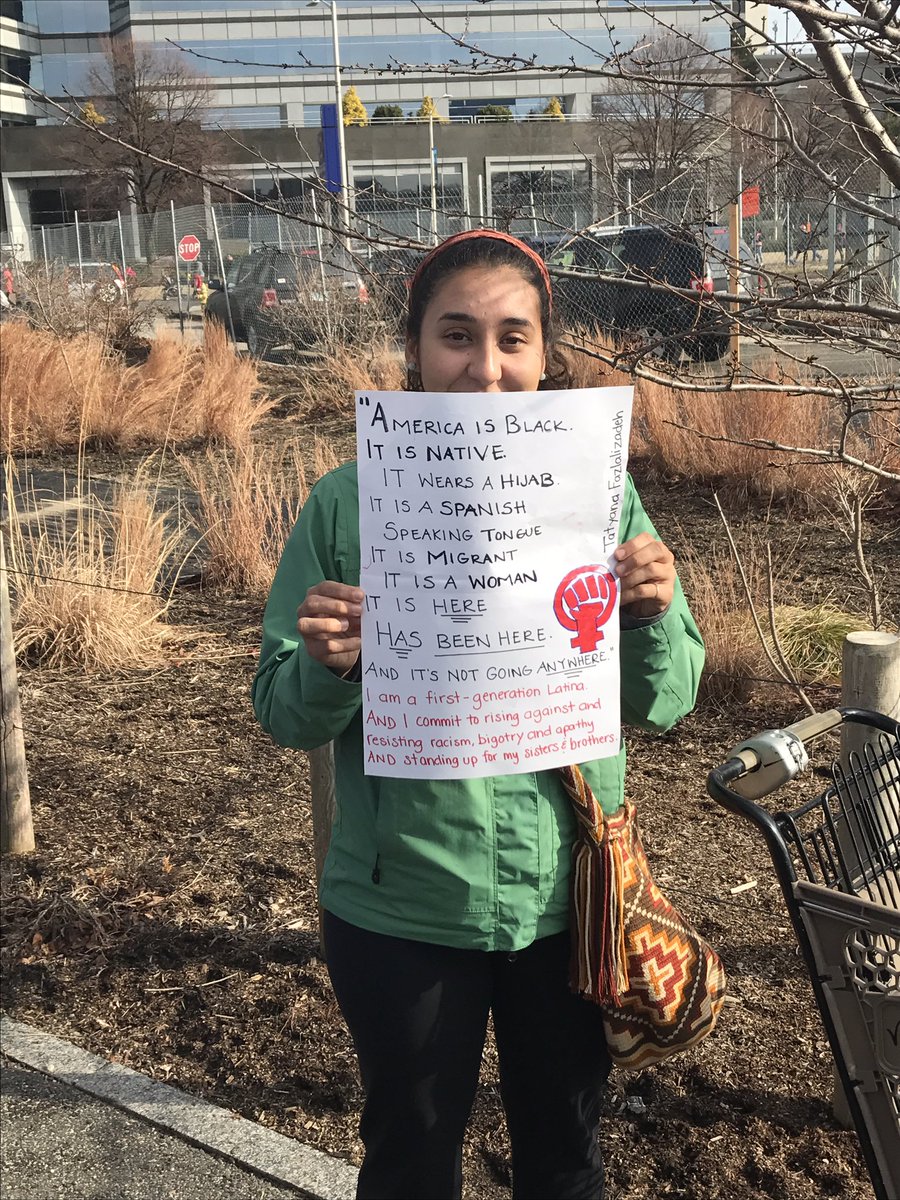 STOP
"AMERICA IS BLACK.
IT IS NATIVE.
IT WEARS A HIJAB.
IT IS A SPANISH
SPEAKING TONGUE
IT IS MIGRANT
IT IS A WOMAN
IT IS HERE
HAS BEEN HERE.
AND IT'S NOT GOING ANYWHERE."
Tatyana Fazlalizadeh
I am a first-generation Latina.
AND I commit to rising against and
resisting racism, bigotry and apathy
AND standing up for my sisters & brothers.